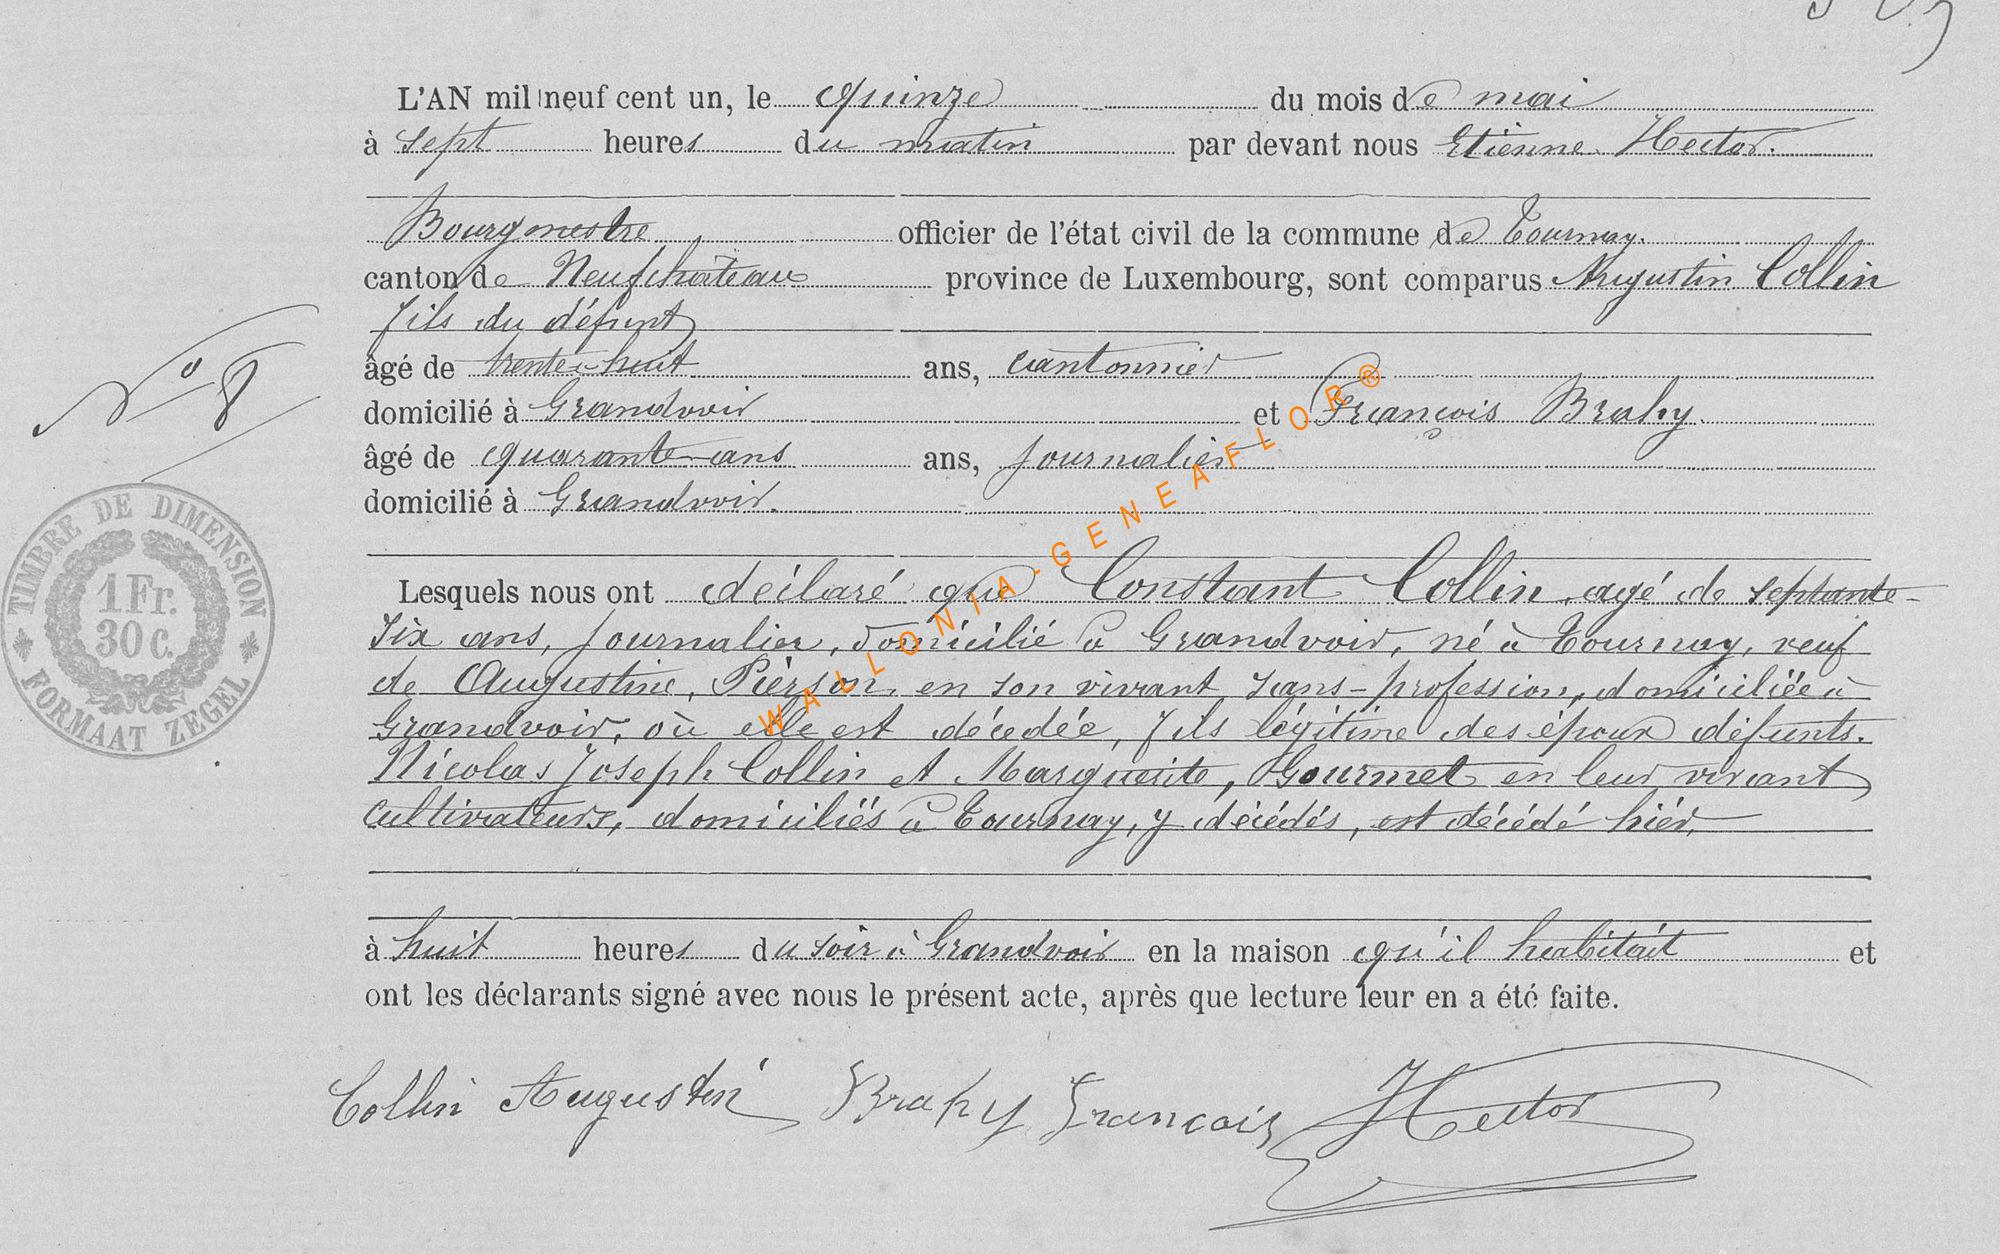 L'AN mil neuf cent un, le quinze du mois de mai
à sept heures du matin par devant nous Etienne Hector.
Bourgmestre officier de l'état civil de la commune de Tournay.
canton de Neufchâteau province de Luxembourg, sont comparus Augustin Collin
fils du défunt
âgé de trente-huit ans, cantonnier
domicilié à Grandvoir et François Brahy.
âgé de quarante-ans ans, journalier
domicilié à Grandvoir.
N° 8
TIMBRE DE DIMENSION
1 Fr.
30 c.
FORMAAT ZEGEL
Lesquels nous ont déclaré que Constant Collin, agé de septante-
six ans, journalier, domicilié à Grandvoir, né à Tournay, veuf
de Augustine, Pièrson, en son vivant, sans-profession, domiciliée à
Grandvoir, où elle est décédée, fils légitime des époux défunts.
Nicolas Joseph Collin et Marguerite, Gourmet en leur vivant
cultivateurs, domiciliés à Tournay, y décédés, est décédé hier,
à huit heures du soir à Grandvoir en la maison qu'il habitait et
ont les déclarants signé avec nous le présent acte, après que lecture leur en a été faite.
Collin Augustin Brahy François Hector
WALLONIA-GENEAFLOR®